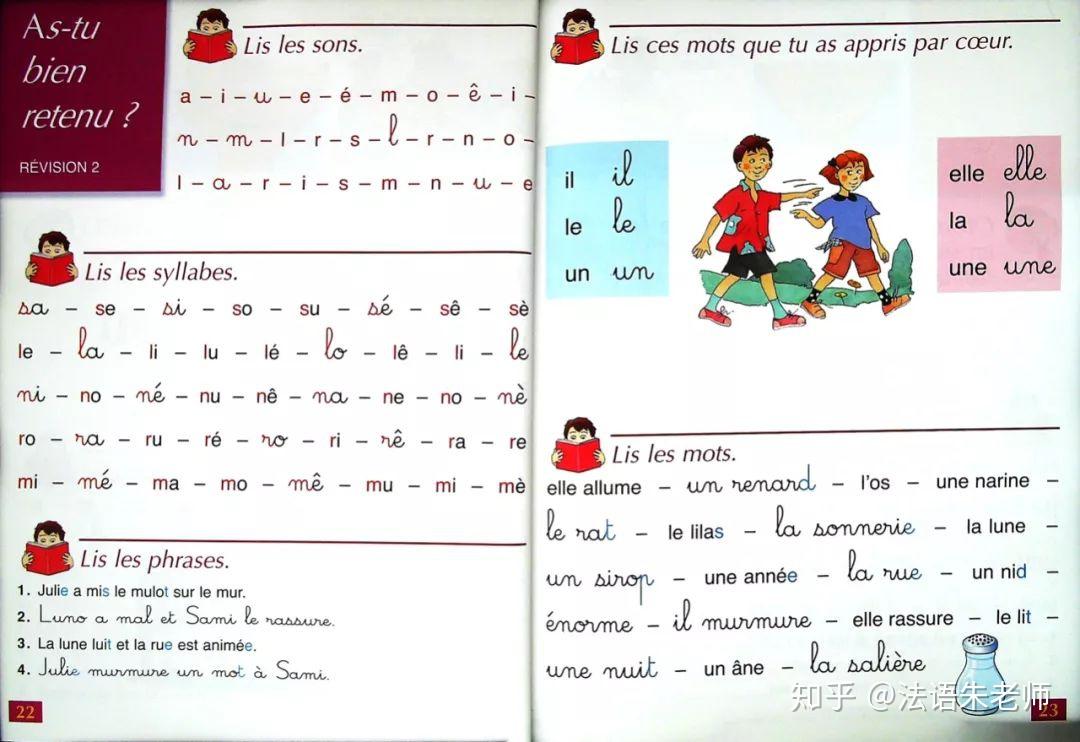 As-tu
bien
retenu ?
RÉVISION 2
Lis les sons.
a – i – u – e – é – m – o – ê – i –
n – m – l – r – s – l – r – n – o –
l – a – r – i – s – m – n – u – e
Lis les syllabes.
sa – se – si – so – su – sé – sê – sè
le – la – li – lu – lé – lo – lê – li – le
ni – no – né – nu – nê – na – ne – no – nè
ro – ra – ru – ré – ro – ri – rê – ra – re
mi – mé – ma – mo – mê – mu – mi – mè
Lis les phrases.
1. Julie a mis le mulot sur le mur.
2. Luno a mal et Sami le rassure.
3. La lune luit et la rue est animée.
4. Julie murmure un mot à Sami.
22
Lis ces mots que tu as appris par cœur.
il il
le le
un un
elle elle
la la
une une
Lis les mots.
elle allume – un renard – l'os – une narine –
le rat – le lilas – la sonnerie – la lune –
un sirop – une année – la rue – un nid –
énorme – il murmure – elle rassure – le lit –
une nuit – un âne – la salière
知乎 @法语朱老师
23